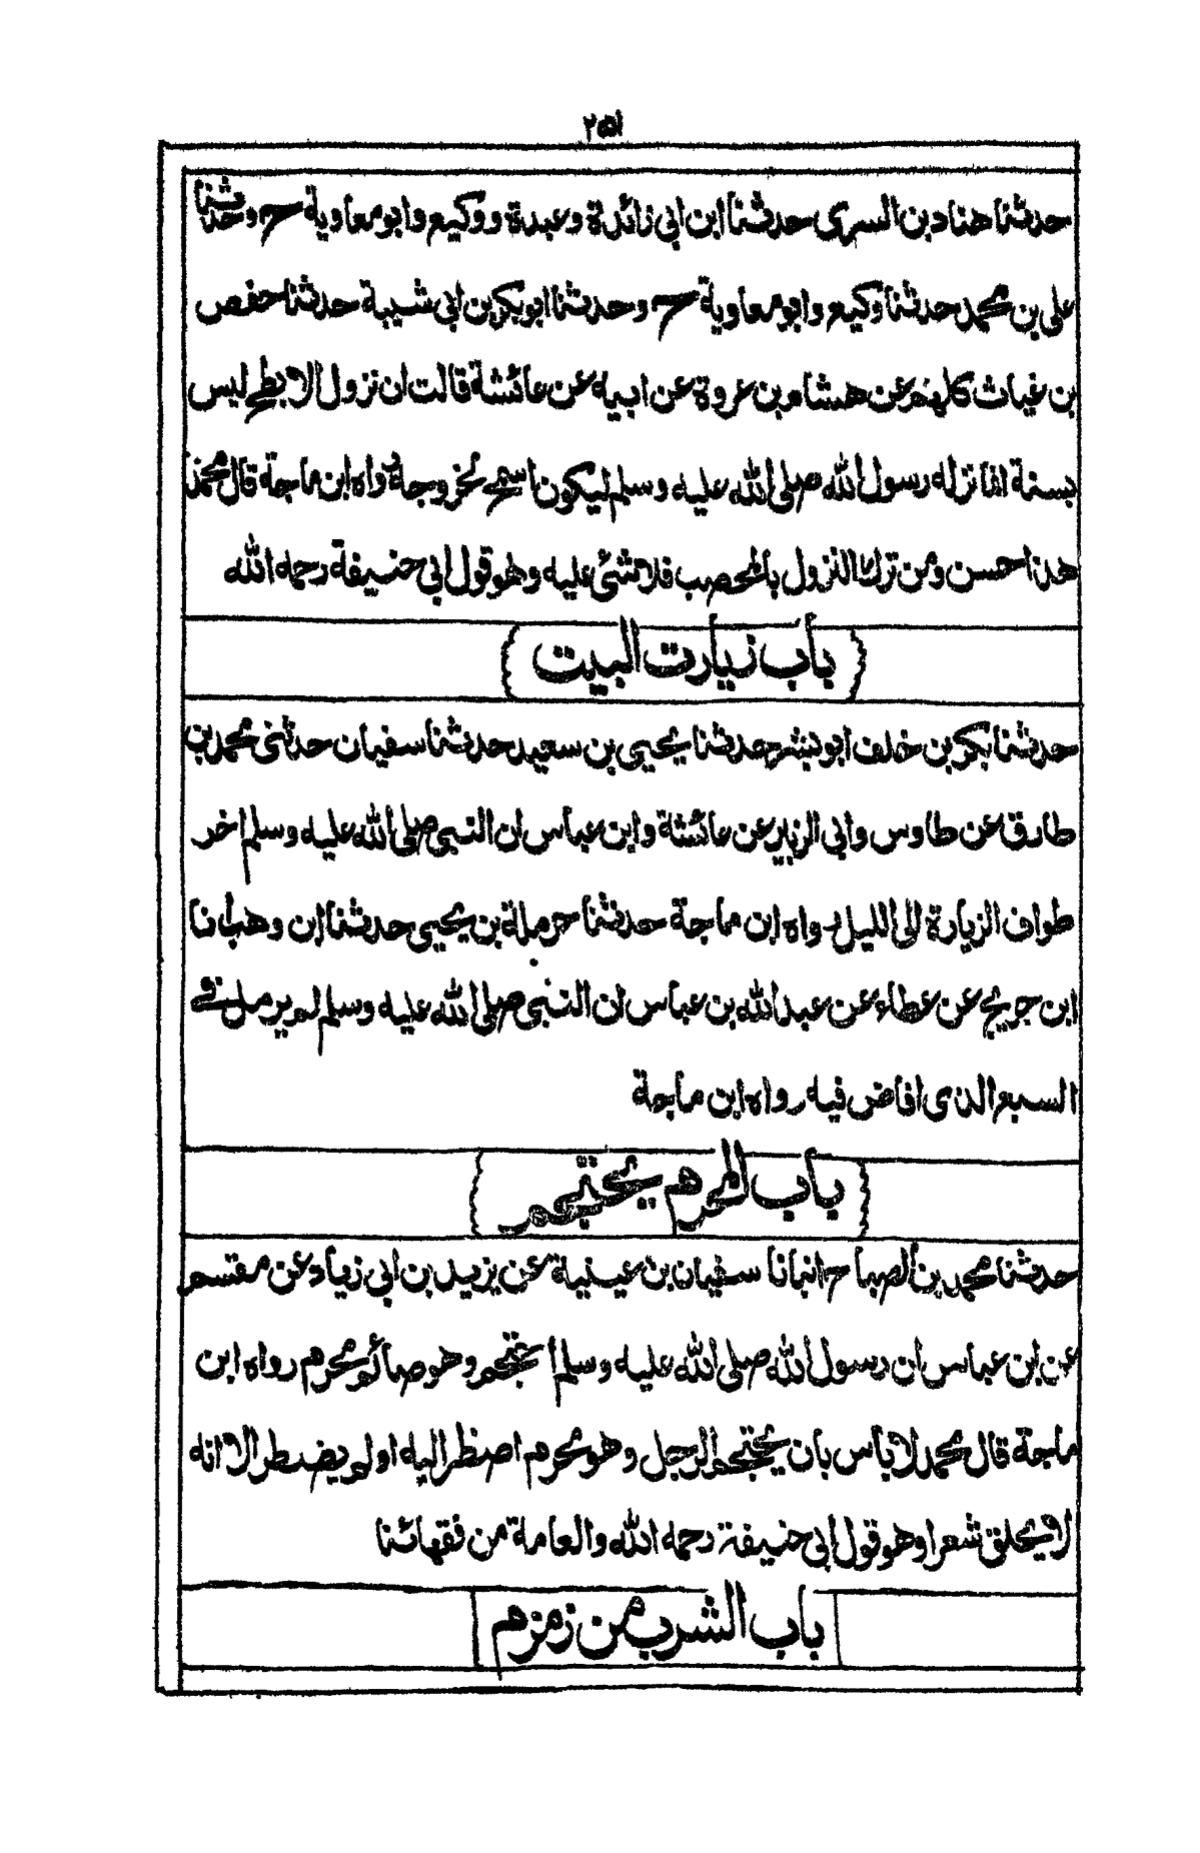 ٢٥١
حدثنا هناد بن السرى حدثنا ابن ابي زائدة وعبدة ووكيع وابو معاوية ح وحدثنا
على بن محمد حدثنا وكيع وابو معاوية ح وحدثنا ابو بكر بن ابي شيبة حدثنا حفص
بن غياث كلهم عن هشام بن عروة عن ابيه عن عائشة قالت ان نزول الابطح ليس
بسنة انما نزله رسول الله صلى الله عليه وسلم ليكون اسمح لخروجه رواه ابن ماجة قال محمد
هذا حسن ومن ترك النزول بالمحصب فلا شئ عليه وهو قول ابي حنيفة رحمه الله
باب زيارت البيت
حدثنا بكر بن خلف ابو بشر حدثنا يحيى بن سعيد حدثنا سفيان حدثنى محمد بن
طارق عن طاوس وابي الزبير عن عائشة وابن عباس ان النبى صلى الله عليه وسلم اخر
طواف الزيارة الى الليل رواه ابن ماجة حدثنا حرملة بن يحيى حدثنا ابن وهب أنا
ابن جريج عن عطاء عن عبد الله بن عباس ان النبى صلى الله عليه وسلم لم يرمل فى
السبع الذى افاض فيه رواه ابن ماجة
باب المحرم يحتجم
حدثنا محمد بن الصباح انبانا سفيان بن عيينة عن يزيد بن ابي زياد عن مقسم
عن ابن عباس ان رسول الله صلى الله عليه وسلم احتجم وهو صائم محرم رواه ابن
ماجة قال محمد لا باس بان يحتجم الرجل وهو محرم اضطر اليه او لم يضطر الا انه
لا يحلق شعرا وهو قول ابي حنيفة رحمه الله والعامة من فقهائنا
باب الشرب من زمزم